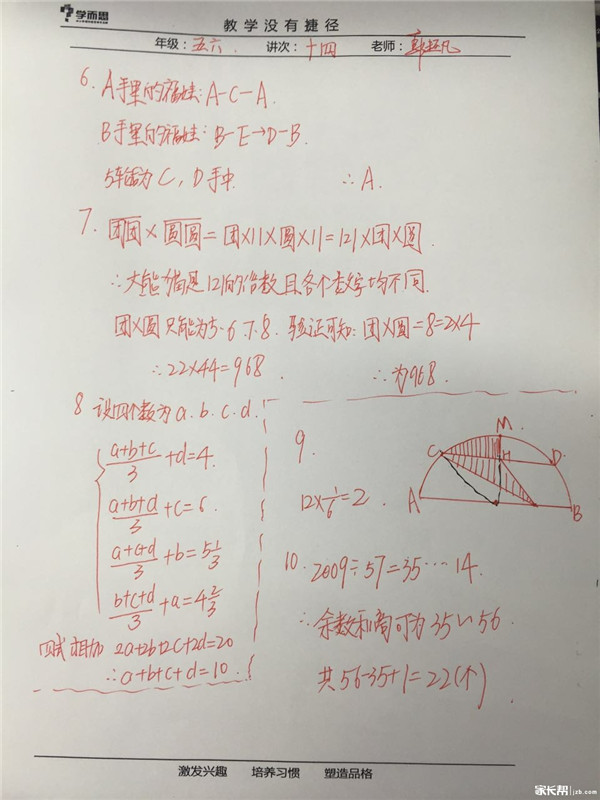 学而思
教学没有捷径
年级：五六 讲次：十四 老师：
6. A手里的福娃：A-C-A.
B手里的福娃：B-E→D-B.
5轮后为C，D手中. ∴A.
7. 团团×圆圆=团×11×圆×11=121×团×圆.
∴大能猫是121的倍数且各个数字均不同.
团×圆只能为5.6.7.8. 验证可知：团×圆=8=2×4
∴22×44=968. ∴为968.
8 设四个数为a.b.c.d.
a+b+c/3+d=4.
a+b+d/3+c=6.
a+c+d/3+b=5 1/3
b+c+d/3+a=4 2/3
四式相加 2a+2b+2c+2d=20
∴a+b+c+d=10.
9.
M
C H D
A B
12×1/6=2.
10. 2009÷57=35…14.
∴余数和商可为35~56.
共56-35+1=22(个)
激发兴趣 培养习惯 塑造品格
家长帮 jzb.com